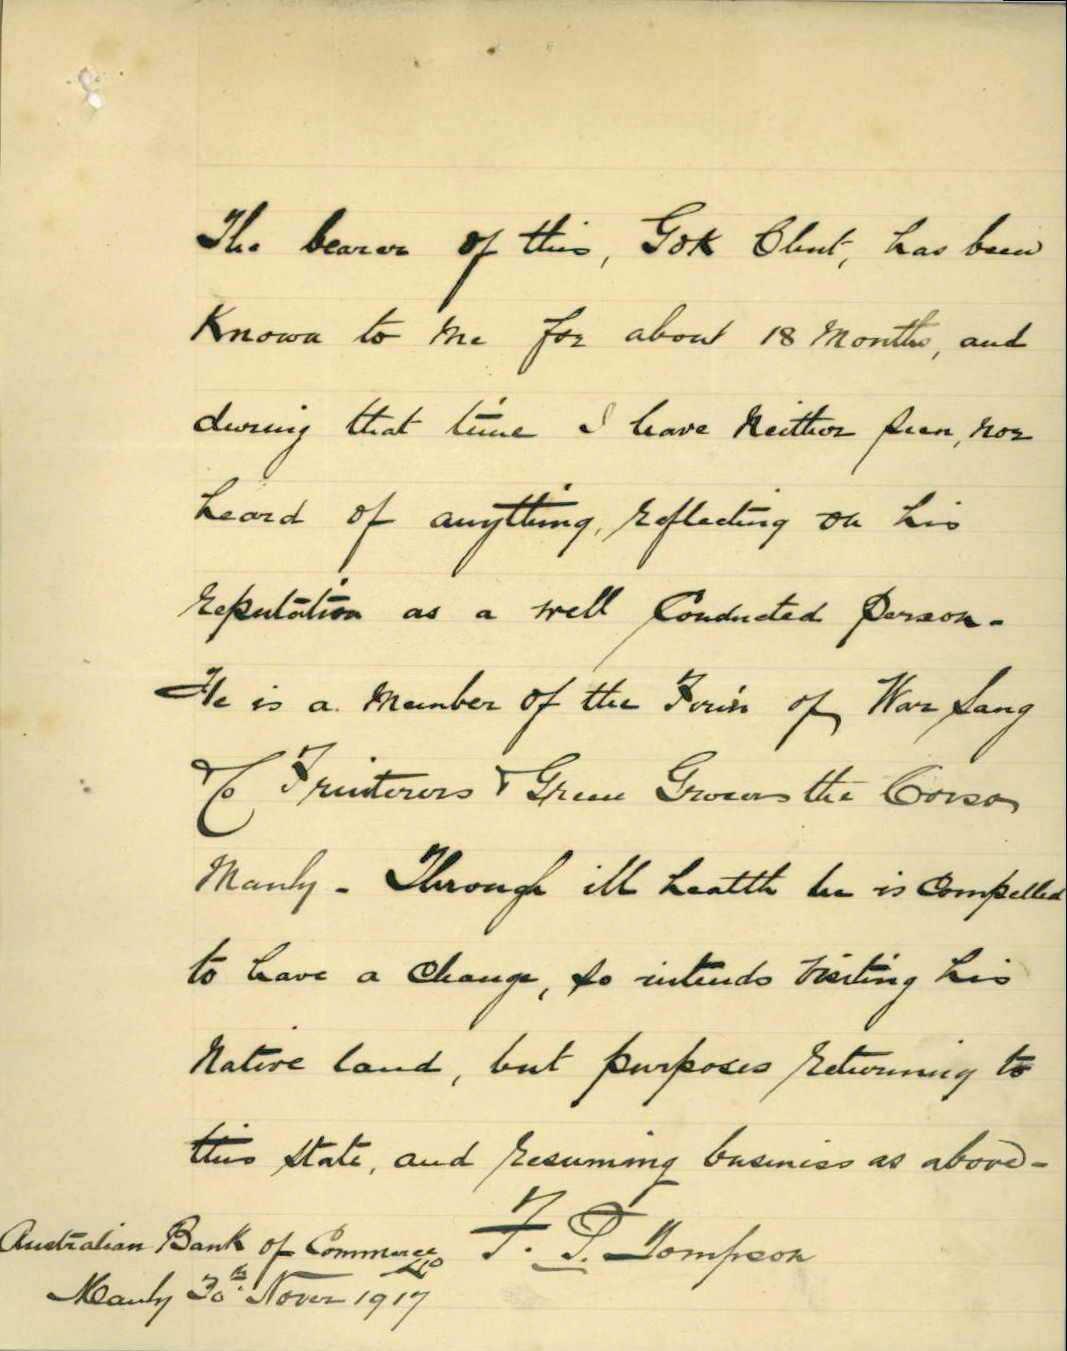 The bearer of this, Gok Chut, has been
Known to me for about 18 Months, and
during that time I have Neither seen, nor
heard of anything, reflecting on his
reputation as a well Conducted Person -
He is a Member of the Firm of War Sang
& Co Fruiterers & Green Grocers the Corso
Manly - Through ill health he is Compelled
to have a Change, so intends visiting his
Native land, but purposes returning to
this state, and resuming business as above -
F. T. Tompson
Australian Bank of Commerce Ltd
Manly 30th Novr 1917